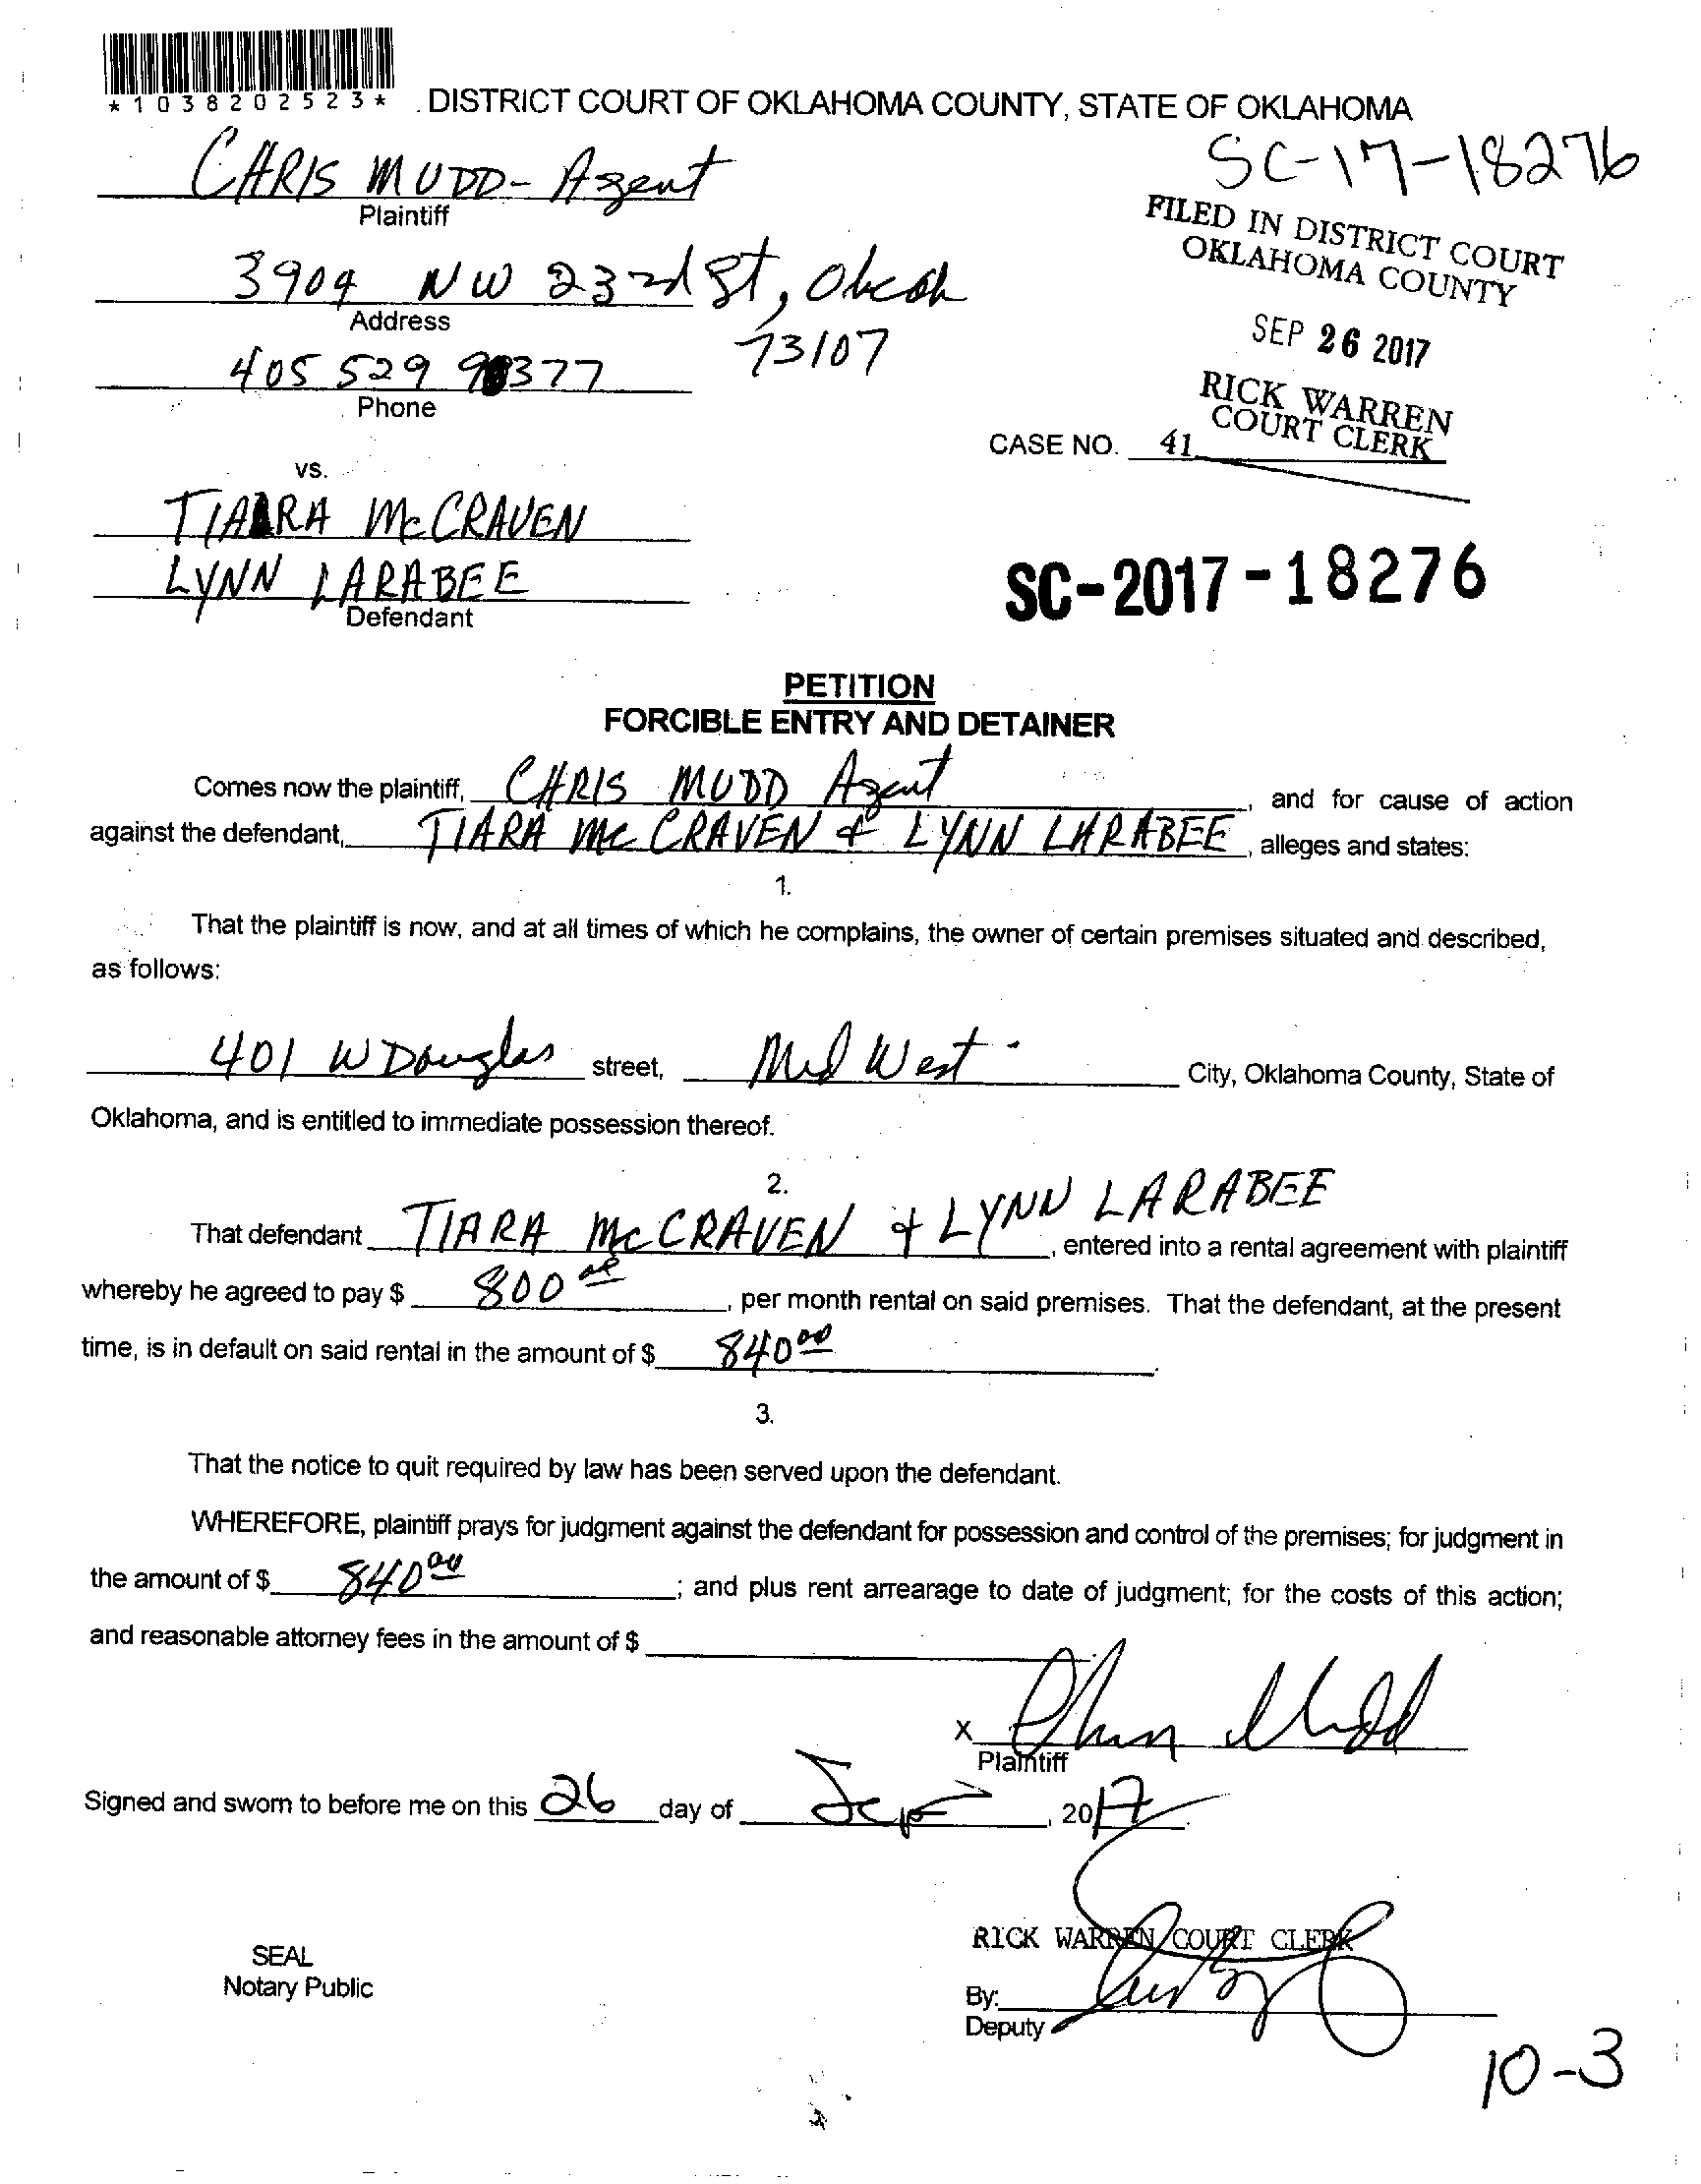 *1038202523*
DISTRICT COURT OF OKLAHOMA COUNTY, STATE OF OKLAHOMA
CHRIS MUDD - Agent
SC-17-18276
Plaintiff
FILED IN DISTRICT COURT
OKLAHOMA COUNTY
3904 NW 23rd St, Okcok
Address
73107
SEP 26 2017
405 529 9377
Phone
RICK WARREN
COURT CLERK
CASE NO. 41
vs.
TIARA McCRAVEN
LYNN LARABEE
Defendant
SC-2017-18276
PETITION
FORCIBLE ENTRY AND DETAINER
Comes now the plaintiff, CHRIS MUDD Agent, and for cause of action
against the defendant, TIARA McCRAVEN & LYNN LARABEE, alleges and states:
1.
That the plaintiff is now, and at all times of which he complains, the owner of certain premises situated and described,
as follows:
401 W Douglas street, Mid West City, Oklahoma County, State of
Oklahoma, and is entitled to immediate possession thereof.
2.
That defendant TIARA McCRAVEN & LYNN LARABEE, entered into a rental agreement with plaintiff
whereby he agreed to pay $ 800 00, per month rental on said premises. That the defendant, at the present
time, is in default on said rental in the amount of $ 840 00.
3.
That the notice to quit required by law has been served upon the defendant.
WHEREFORE, plaintiff prays for judgment against the defendant for possession and control of the premises; for judgment in
the amount of $ 840 00; and plus rent arrearage to date of judgment; for the costs of this action;
and reasonable attorney fees in the amount of $
X Chris Mudd
Plaintiff
Signed and sworn to before me on this 26 day of Sep, 2017
RICK WARREN COURT CLERK
SEAL
Notary Public
By:
Deputy
10-3